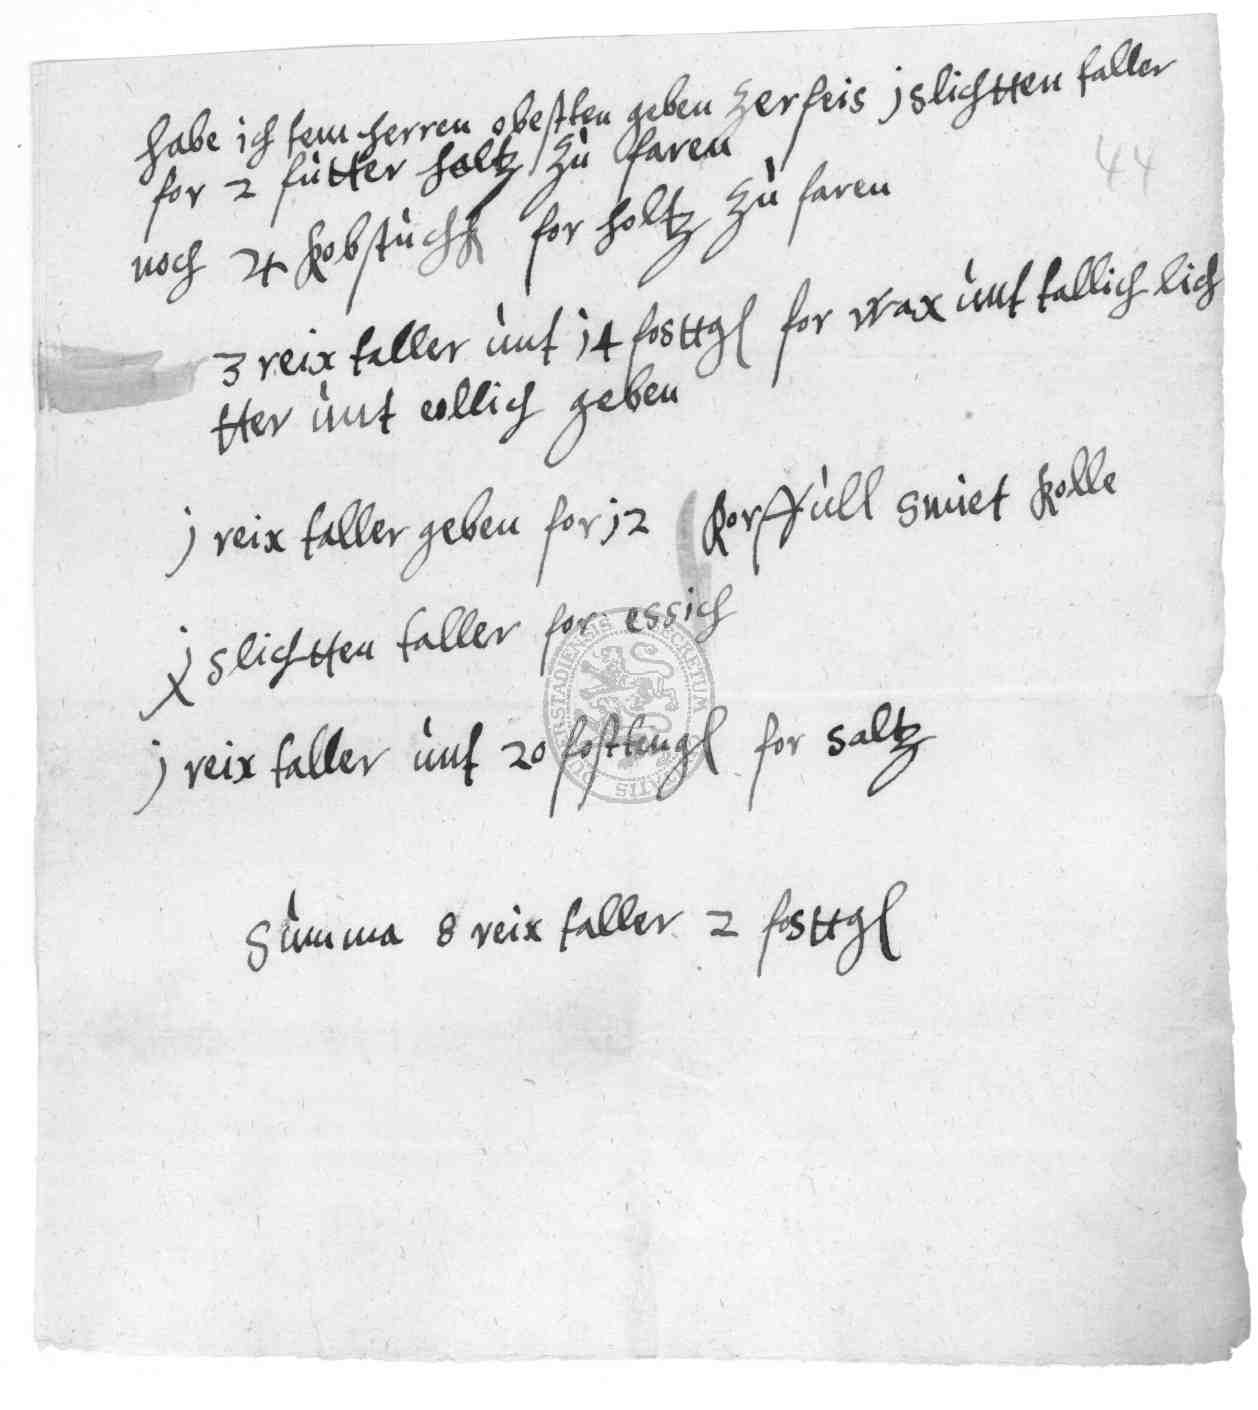 habe ich tem herren obesten geben zerfeis j slichtten taller
for 2 fùtter holtz zù faren
44
noch 4 kobstùchk for holtz zù faren
3 reix taller ùnt 14 fosttgl for wax ùnt tallich lich
tter ùnt ollich geben
j reix taller geben for 12 korffùll smiet kolle
j slichtten taller for essich
j reix taller ùnt 20 fosttengl for saltz
sùmma 8 reix taller 2 fosttgl